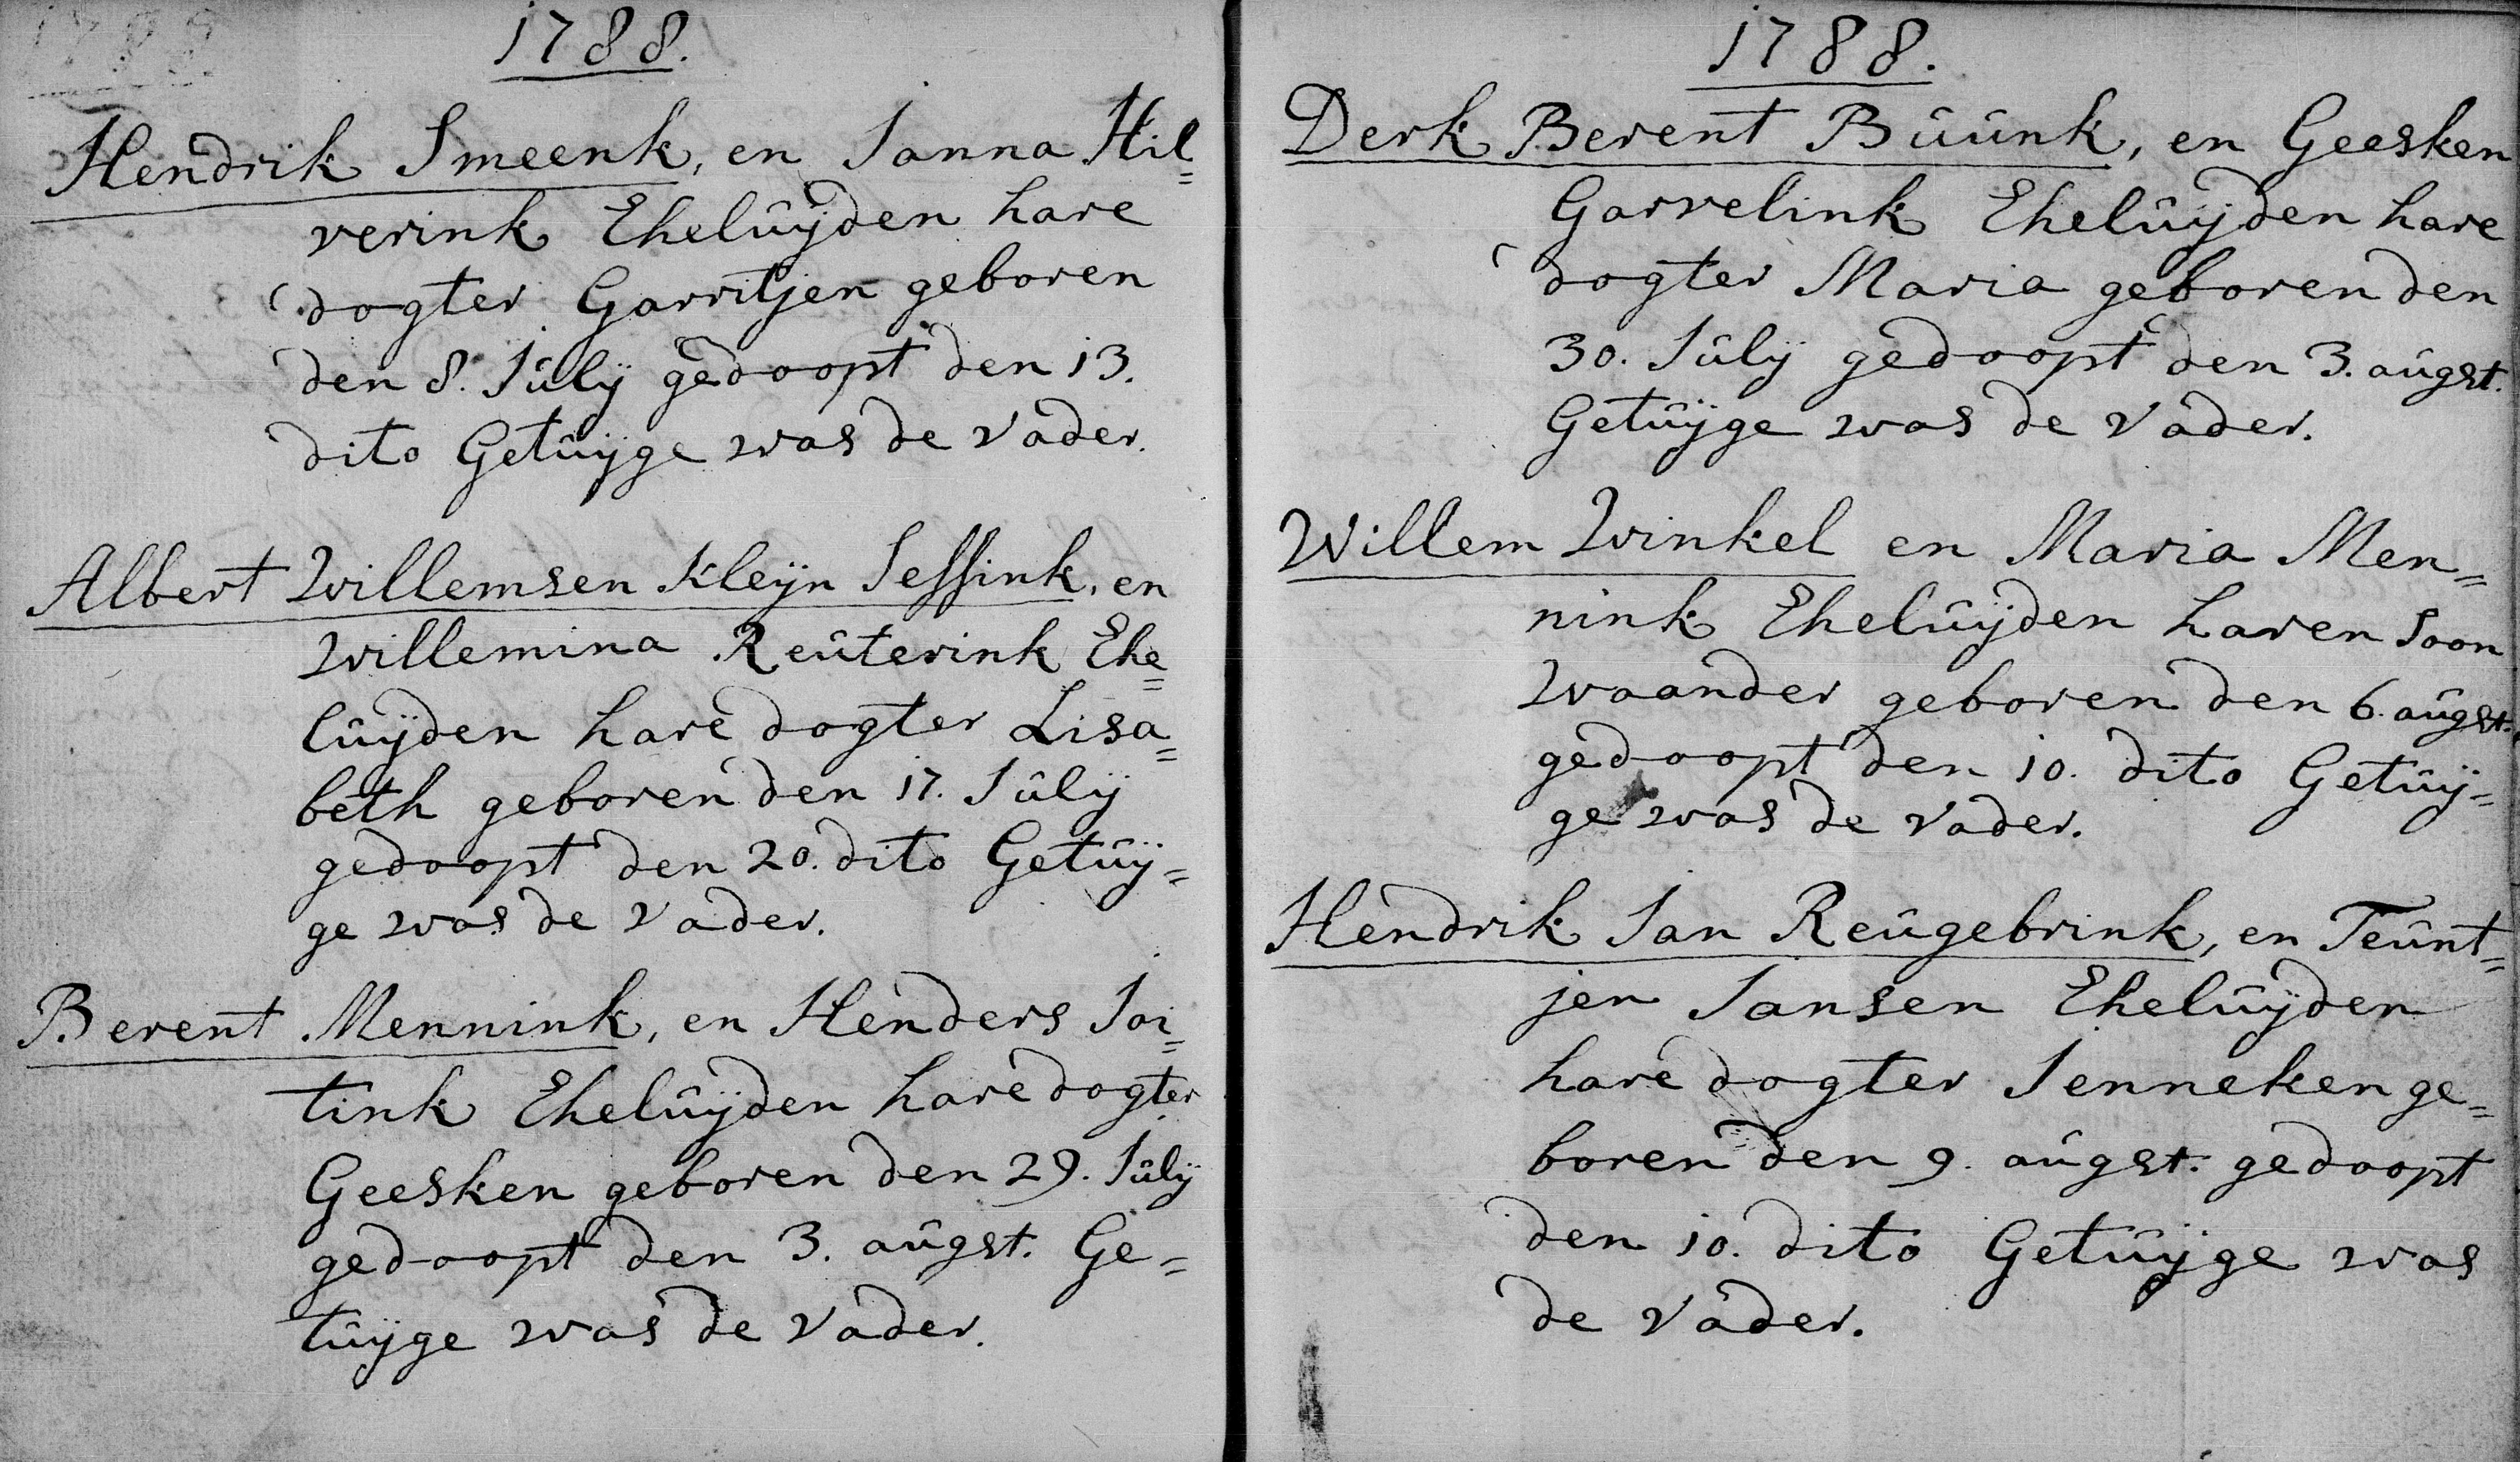 1788.
Hendrik Smeenk, en Janna Hil=
verink Ehelûÿden hare
dogter Garritjen geboren
den 8. Jûlÿ gedoopt den 13.
dito Getûÿge was de vader.
Albert Willemsen Kleÿn Jessink, en
Willemina Reûterink Ehe=
lûÿden hare dogter Lisa=
beth geboren den 17. Jûlÿ
gedoopt den 20. dito Getûÿ=
ge was de vader.
Berent Mennink, en Henders Joi=
tink Ehelûÿden hare dogter
Geesken geboren den 29. Jûlÿ
gedoopt den 3. aûgst. Ge=
tûÿge was de vader.
1788.
Derk Berent Bûûnk, en Geesken
Garvelink Ehelûÿden hare
dogter Maria geboren den
30. Jûlÿ gedoopt den 3. aûgst.
Getûÿge was de vader.
Willem Winkel en Maria Men=
nink Ehelûÿden haren soon
Waander geboren den 6. aûgst.
gedoopt den 10. dito Getûÿ=
ge was de vader.
Hendrik Jan Reûgebrink, en Teûnt=
jen Jansen Ehelûÿden
hare dogter Jenneken ge=
boren den 9. aûgst. gedoopt
den 10. dito Getûÿge was
de vader.